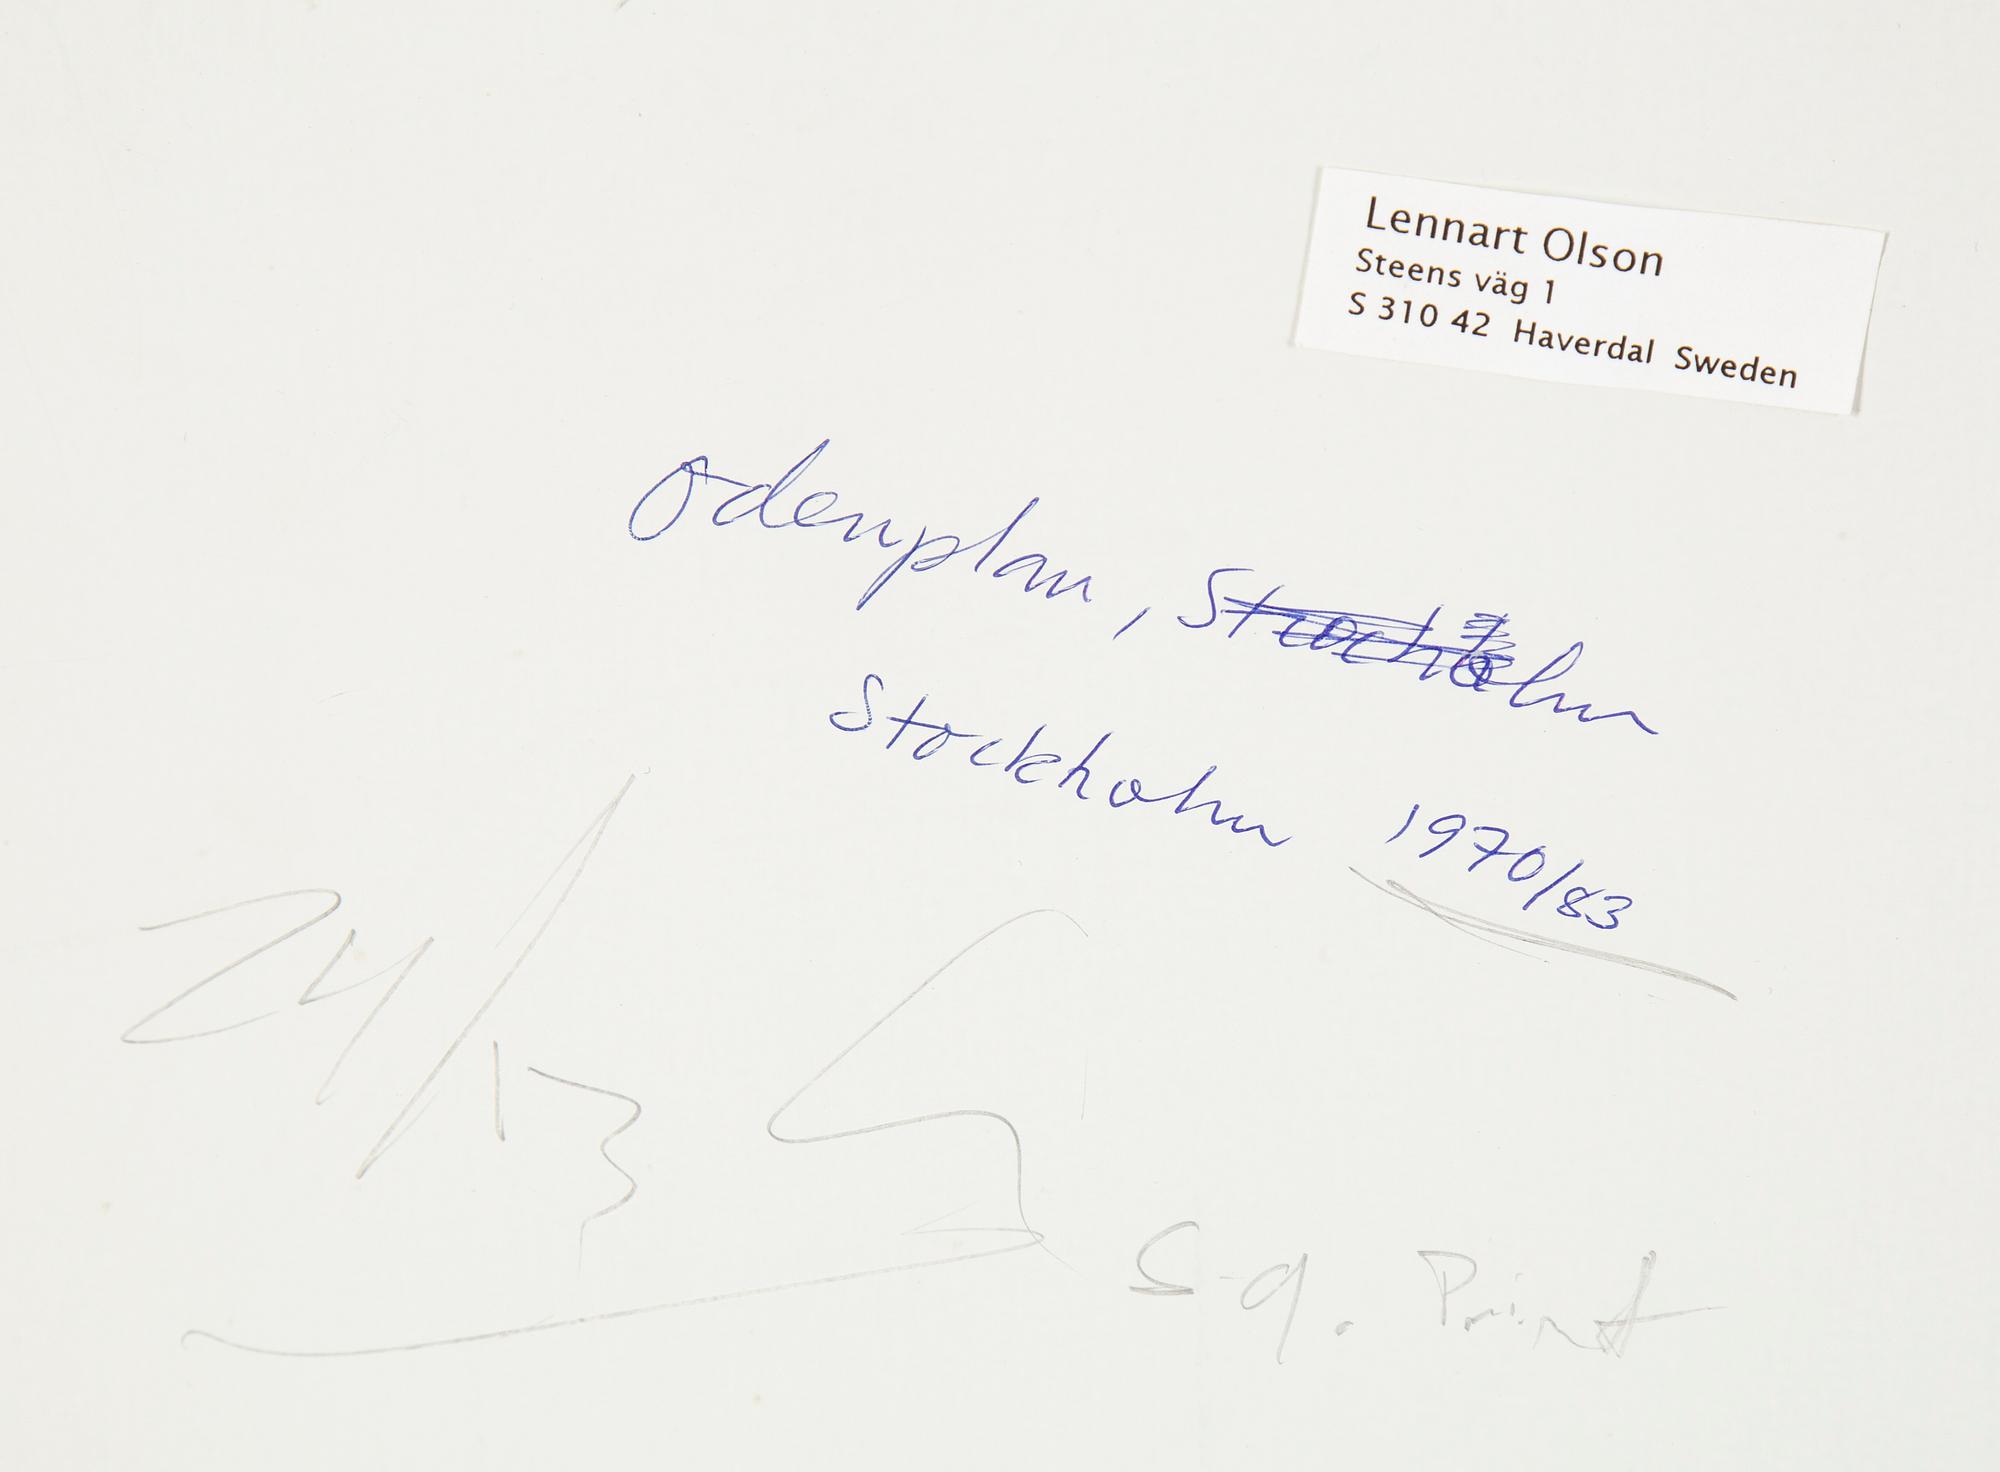 Lennart Olson
Steens väg 1
S 310 42 Haverdal Sweden
Odenplan,
Stockholm 1970/83
24/13
Print